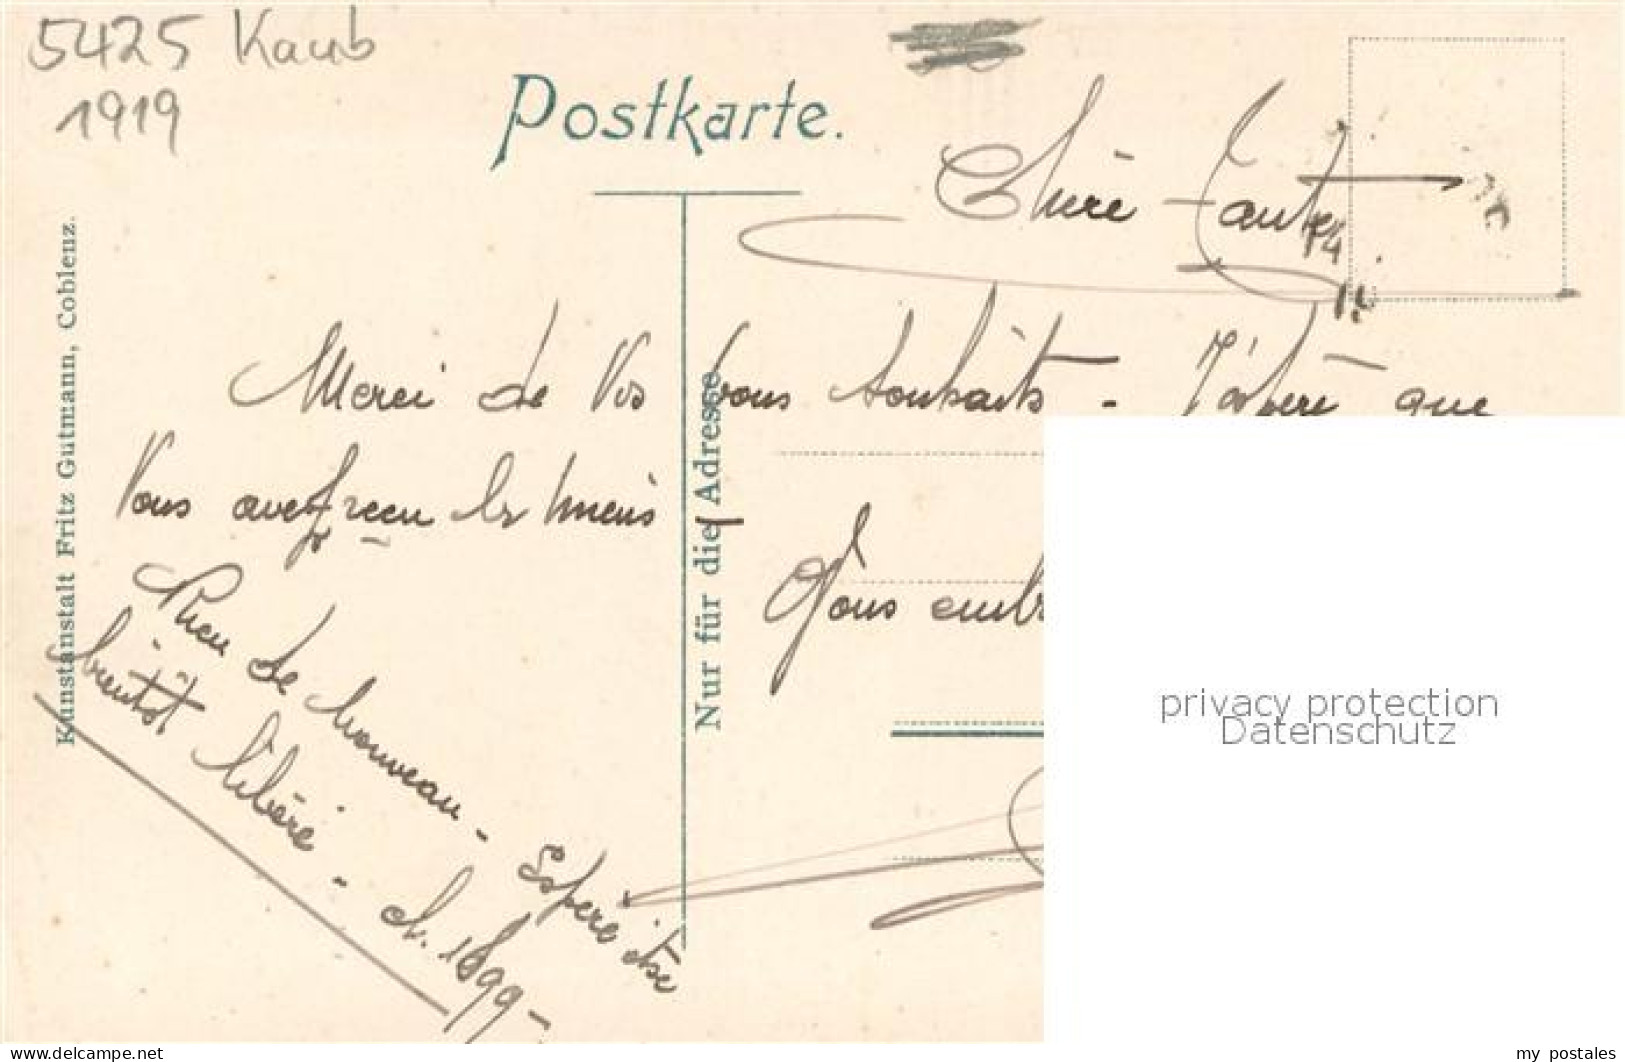 5425 Kaub
1919
Postkarte.
Chère Tante
Merci de Vos bons souhaits - J'espère que
Vous avez reçu les miens -
Rien de nouveau - Espère être
bientôt libéré - cl. 1899 -
Nur für die Adresse
Kunstanstalt Fritz Gutmann, Coblenz.
privacy protection
Datenschutz
www.delcampe.net
my_postales